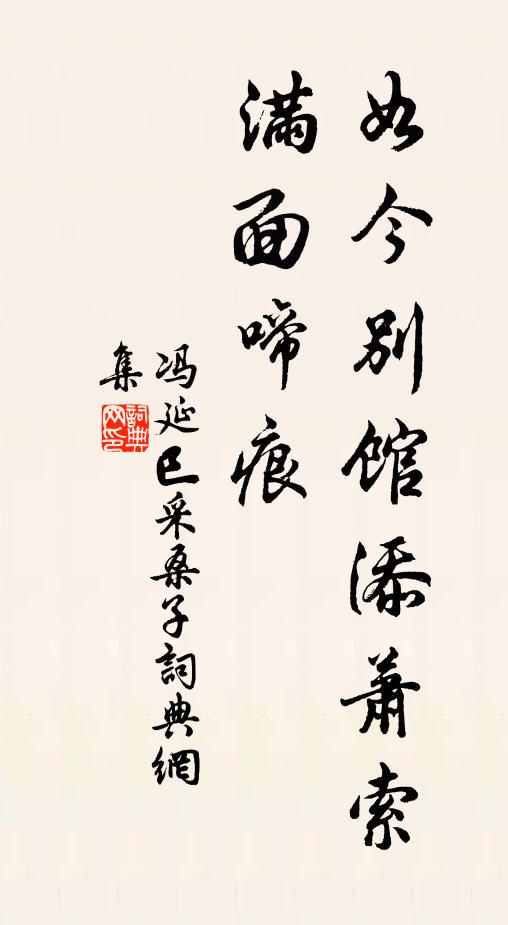 如今别館添蕭索
滿面啼痕
冯延巳采桑子詞典網
集
詞典网印